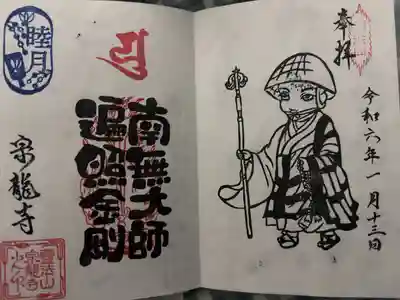 奉拝
令和六年一月十三日
南無大師
遍照金剛
睦月
宗龍寺